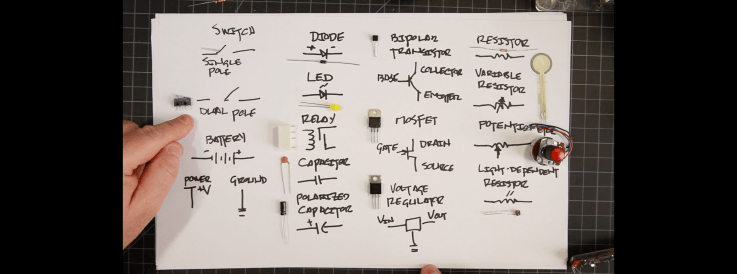 SWITCH
SINGLE
POLE
DUAL POLE
BATTERY
POWER
+V
GROUND
DIODE
+ -
LED
RELAY
CAPACITOR
POLARIZED
CAPACITOR
+
BIPOLAR
TRANSISTOR
BASE
COLLECTOR
EMITTER
MOSFET
GATE
DRAIN
SOURCE
VOLTAGE
REGULATOR
VIN
VOUT
RESISTOR
VARIABLE
RESISTOR
POTENTIOMETER
LIGHT-DEPENDENT
RESISTOR